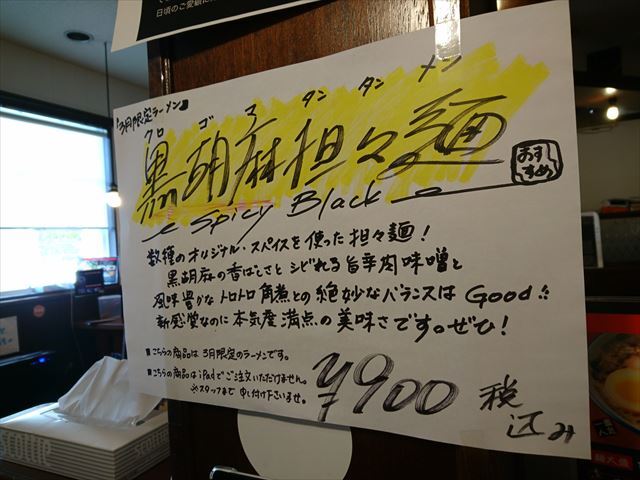 日頃のご愛顧に
『3月限定ラーメン』
クロ ゴ マ タン タン メン
黒胡麻担々麺
おすすめ
Spicy Black
数種のオリジナル・スパイスを使った担々麺!
黒胡麻の香ばしさとシビれる旨辛肉味噌と
風味豊かなトロトロ角煮との絶妙なバランスはGood!!
新感覚なのに本気度満点の美味さです。ぜひ!
■こちらの商品は3月限定のラーメンです。
■こちらの商品はiPadでご注文いただけません。
※スタッフまで申し付け下さいませ。
¥900 税込み
SCOTTIE